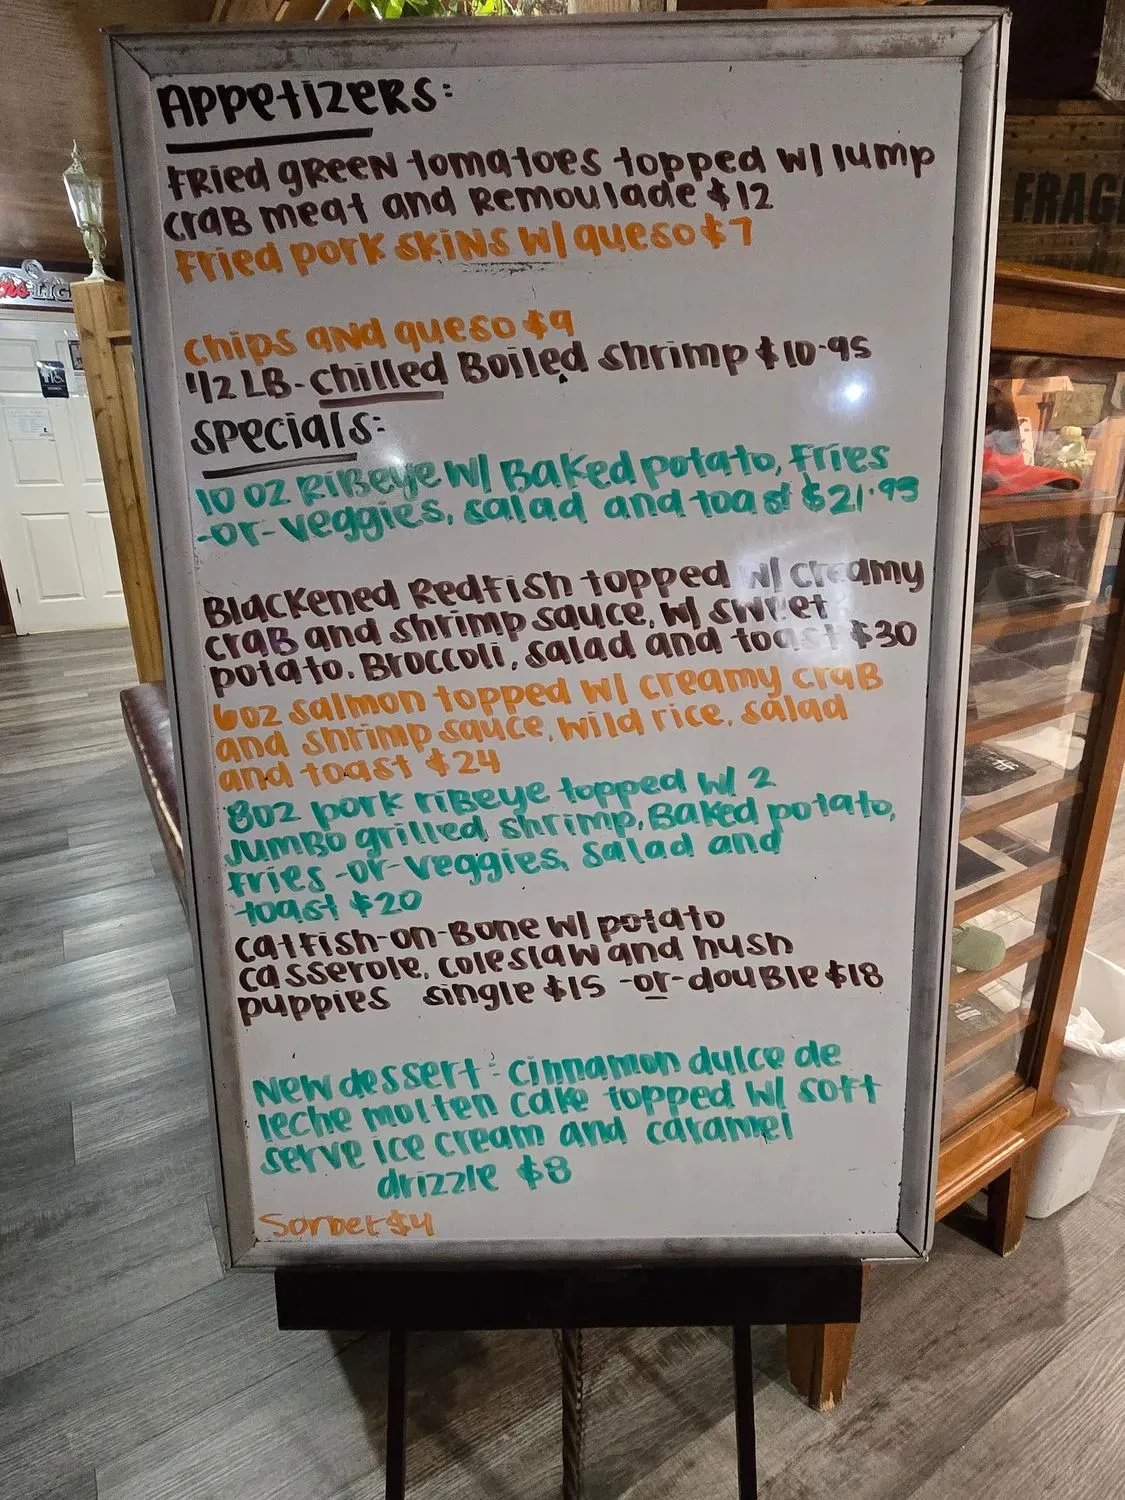 APPetizers:
Fried green tomatoes topped w/ lump
crab meat and Remoulade $12
Fried pork skins w/ queso $7
chips and queso $9
1/2 LB- chilled Boiled shrimp $10.95
specials:
10 oz Ribeye w/ Baked potato, fries
-or- veggies, salad and toast $21.99
Blackened Redfish topped w/ creamy
crab and shrimp sauce, w/ sweet
potato, Broccoli, salad and toast $30
6oz salmon topped w/ creamy crab
and shrimp sauce, wild rice, salad
and toast $24
8oz pork ribeye topped w/ 2
Jumbo grilled shrimp, Baked potato,
fries -or- veggies, salad and
toast $20
catfish-on-Bone w/ potato
casserole, coleslaw and hush
puppies single $15 -or- double $18
New dessert: cinnamon dulce de
leche molten cake topped w/ soft
serve ice cream and caramel
drizzle $8
Sorbet $4
FRAG